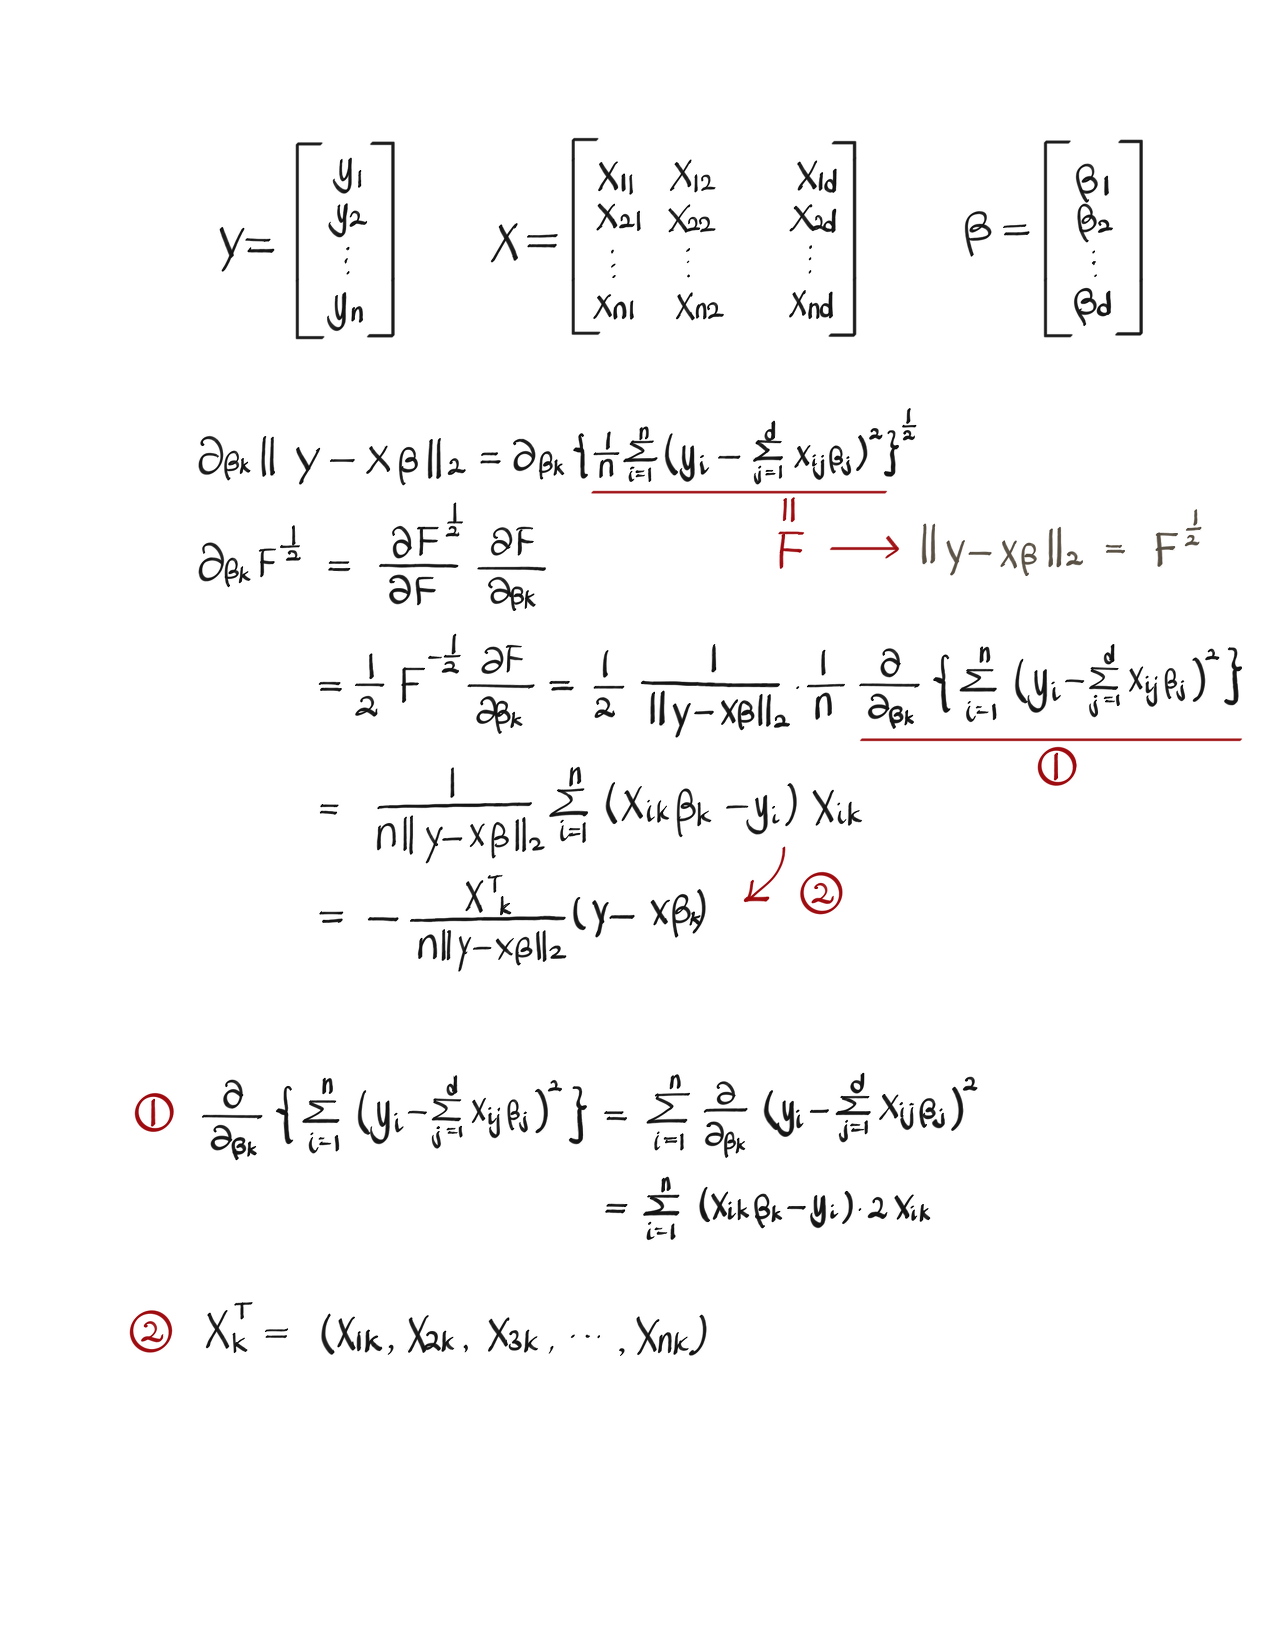 y = [ y₁ y₂ ⋮ yₙ ]  X = [ X₁₁ X₁₂ X₁d ; X₂₁ X₂₂ X₂d ; ⋮ ⋮ ⋮ ; Xn₁ Xn₂ Xnd ]  β = [ β₁ β₂ ⋮ βd ]
∂βₖ ‖ y − Xβ ‖₂ = ∂βₖ { 1/n Σᵢ₌₁ⁿ ( yᵢ − Σⱼ₌₁ᵈ xᵢⱼβⱼ )² }^½
‖
∂βₖ F^½ = ∂F^½/∂F ∂F/∂βₖ  F → ‖ y − Xβ ‖₂ = F^½
= 1/2 F^−½ ∂F/∂βₖ = 1/2 1/‖y − Xβ‖₂ · 1/n ∂/∂βₖ { Σᵢ₌₁ⁿ ( yᵢ − Σⱼ₌₁ᵈ xᵢⱼβⱼ )² }
①
= 1/(n‖y − Xβ‖₂) Σᵢ₌₁ⁿ ( Xᵢₖβₖ − yᵢ ) Xᵢₖ
= − Xᵀₖ/(n‖y − Xβ‖₂) ( y − Xβₖ ) ②
① ∂/∂βₖ { Σᵢ₌₁ⁿ ( yᵢ − Σⱼ₌₁ᵈ xᵢⱼβⱼ )² } = Σᵢ₌₁ⁿ ∂/∂βₖ ( yᵢ − Σⱼ₌₁ᵈ xᵢⱼβⱼ )²
= Σᵢ₌₁ⁿ ( Xᵢₖβₖ − yᵢ ) · 2 Xᵢₖ
② Xₖᵀ = ( X₁ₖ, X₂ₖ, X₃ₖ, ⋯ , Xₙₖ )